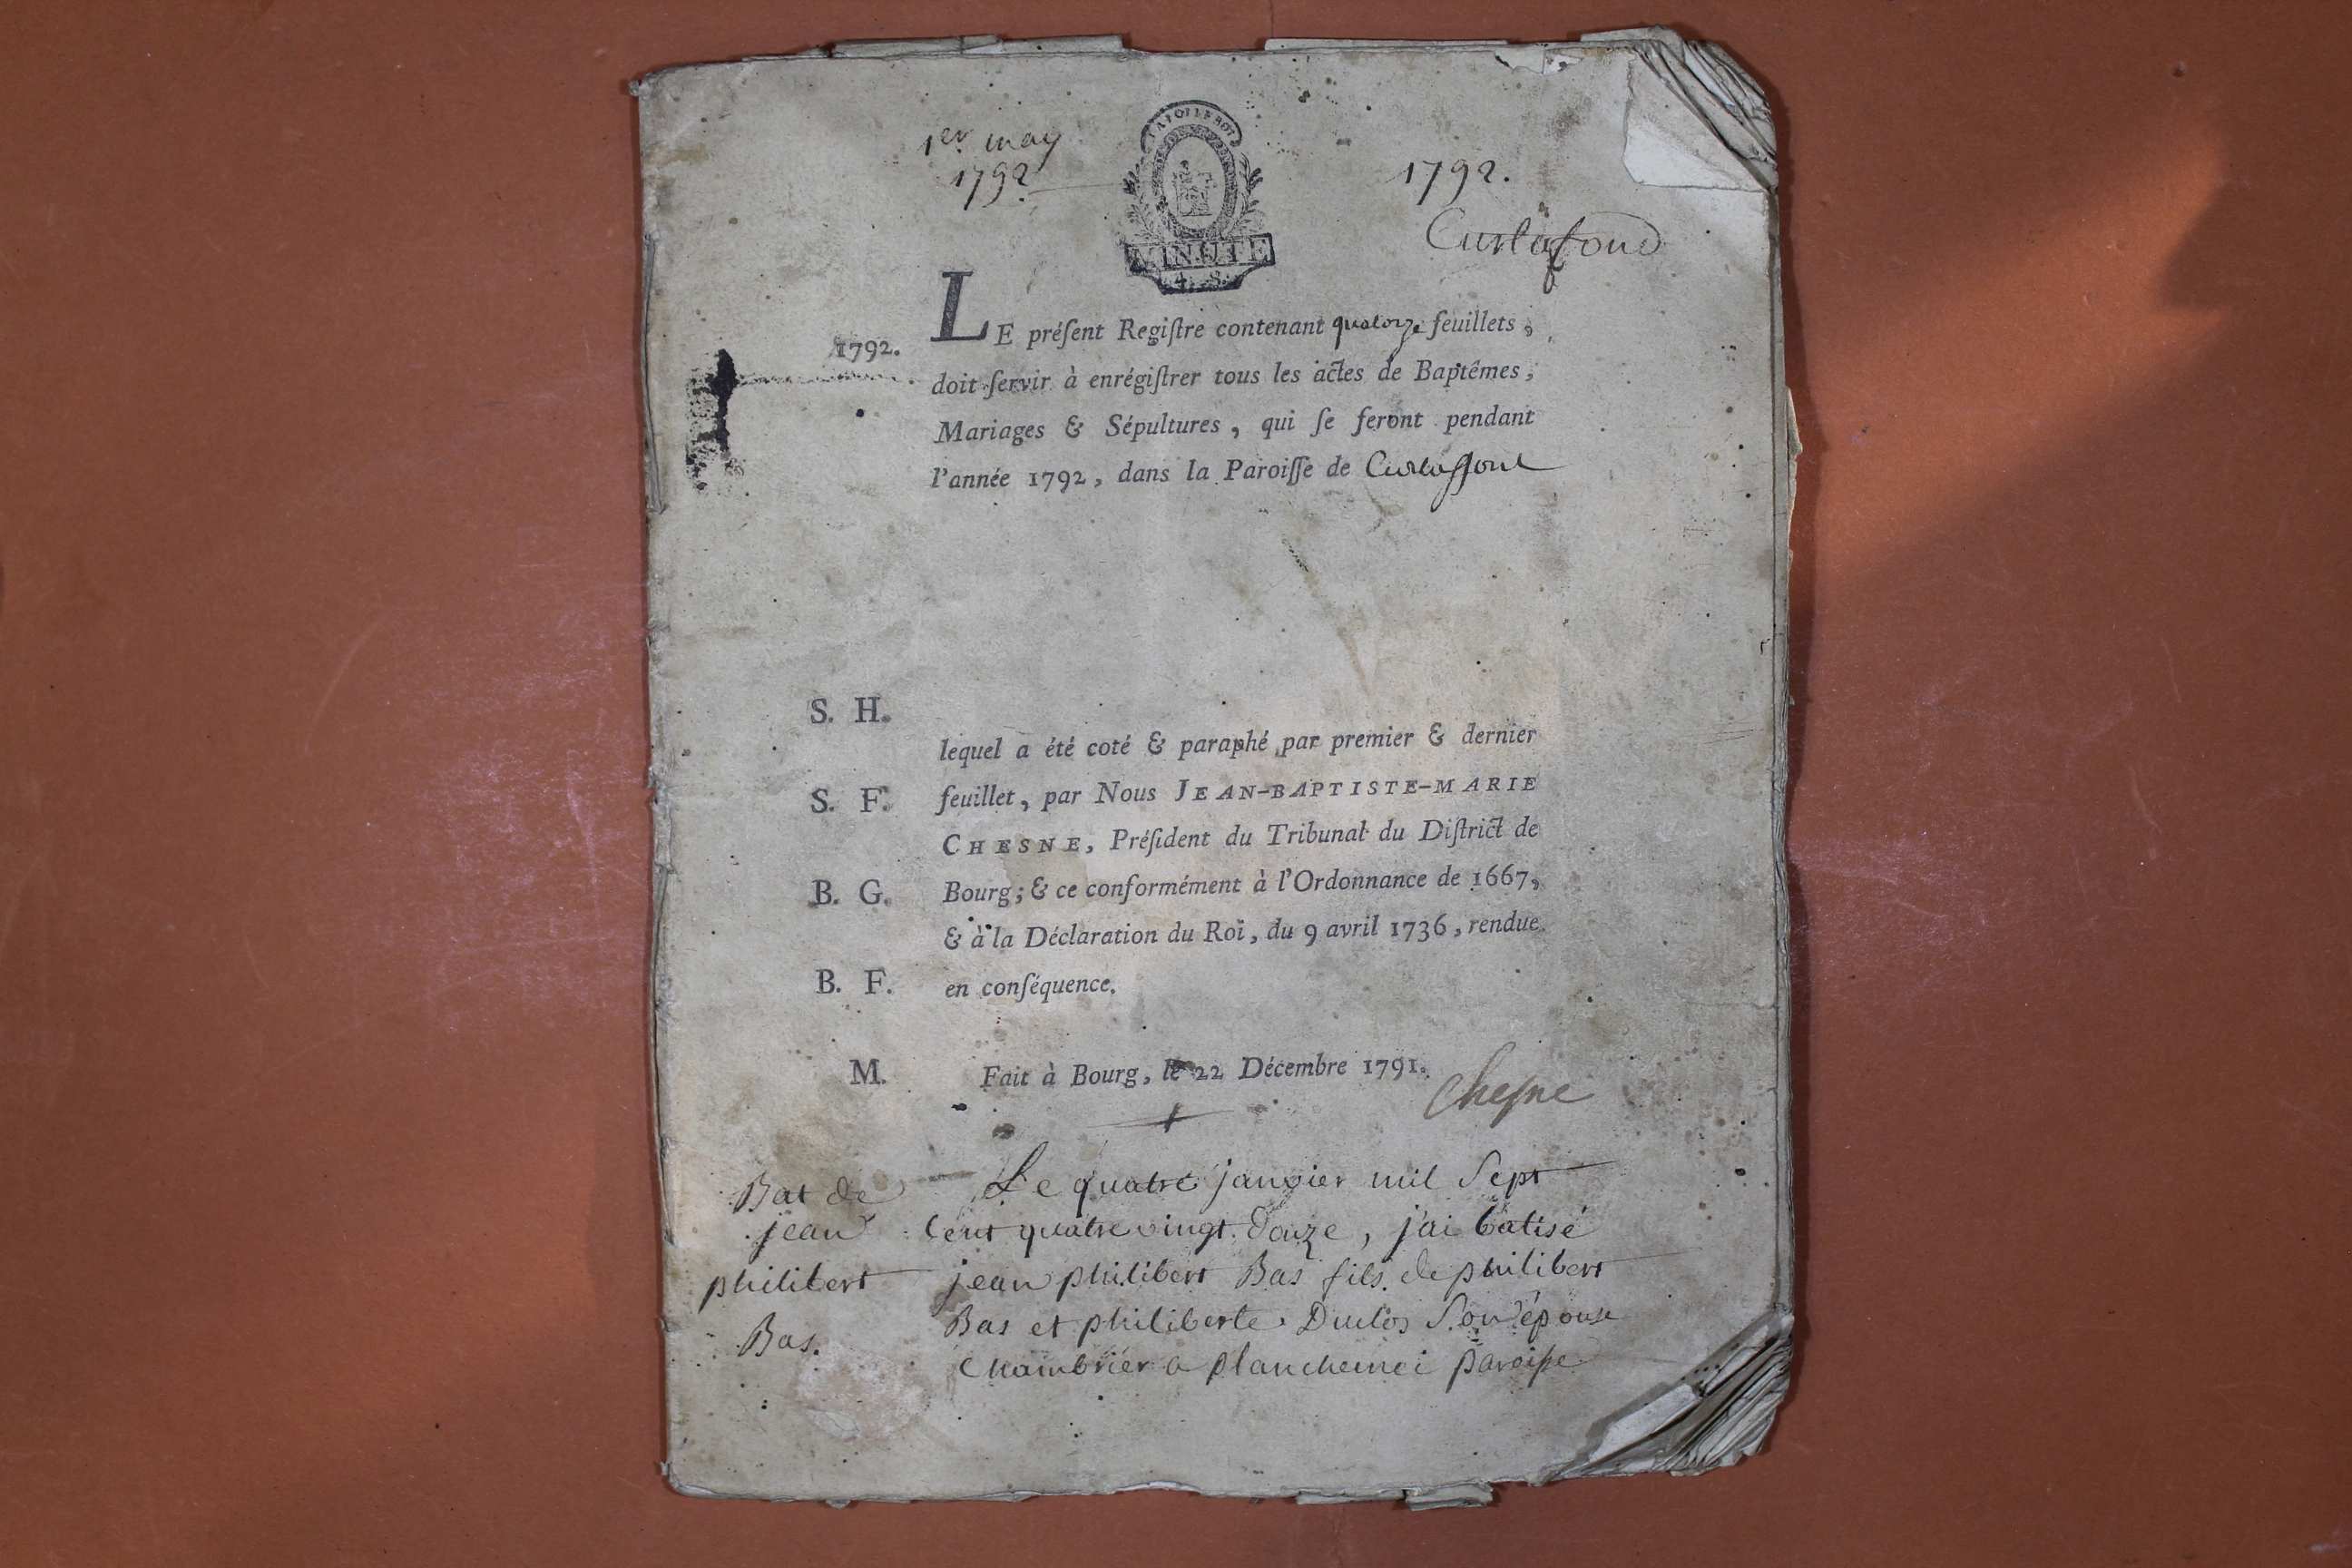 1er. may
1792
LA LOI LE ROI
MINUTE
4. S.
1792.
Curtafond
1792.
LE préſent Regiſtre contenant quatorze feuillets,
doit ſervir à enrégiſtrer tous les actes de Baptêmes,
Mariages & Sépultures, qui ſe feront pendant
l'année 1792, dans la Paroiſſe de Curtaffont
S. H.
lequel a été coté & paraphé par premier & dernier
S. F.
feuillet, par Nous JEAN-BAPTISTE-MARIE
CHESNE, Préſident du Tribunal du Diſtrict de
B. G.
Bourg; & ce conformément à l'Ordonnance de 1667,
& à la Déclaration du Roi, du 9 avril 1736, rendue
B. F.
en conſéquence.
M.
Fait à Bourg, le 22 Décembre 1791.
Chesne
Bat de
jean
philibert
Bas.
Le quatre janvier mil Sept
Cent quatre vingt Douze, j'ai batisé
jean philibert Bas fils de philibert
Bas et philiberte Duclos Son épouse
Chambrier a planchemei paroisse